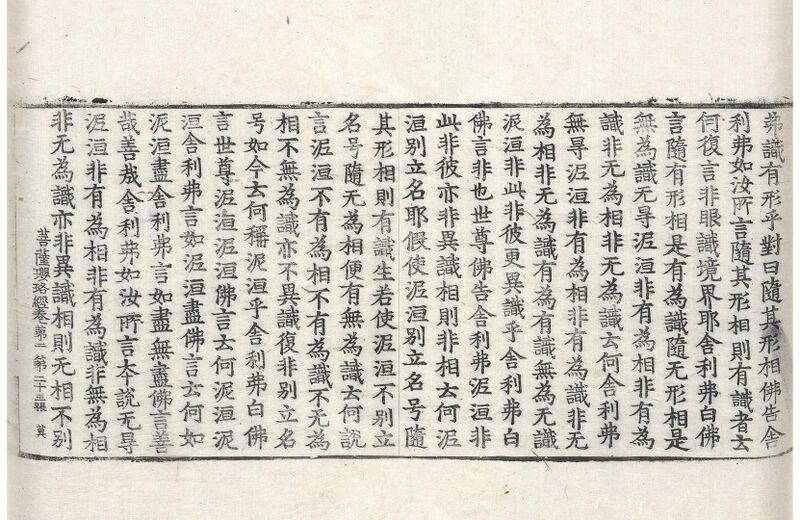 弗識有形乎對曰隨其形相佛告舍
利弗如汝所言隨其形相則有識者云
何復言非眼識境界耶舍利弗白佛
言隨有形相是有為識隨无形相是
無為識无㝵泥洹非有為相非有為
識非无為相非无為識云何舍利弗
無㝵泥洹非有為相非有為識非无
為相非无為識有為有識無為无識
泥洹非此非彼更異識乎舍利弗白
佛言非也世尊佛告舍利弗泥洹非
此非彼亦非異識則非相云何泥
洹別立名耶假使泥洹別立名号隨
其形相則有識生若使泥洹不別立
名号隨无為相便有無為識云何說
言泥洹不有為相不有為識不无為
相不無為識亦不異識復非別立名
号如今云何稱泥洹乎舍利弗白佛
言世尊泥洹泥洹佛言云何泥洹泥
洹舍利弗言如泥洹盡佛言云何如
泥洹盡舍利弗言如盡無盡佛言善
哉善哉舍利弗如汝所言本說无㝵
泥洹非有為相非有為識非無為相
非无為識亦非異識相則无相不別
菩薩瓔珞經卷第二 第二十五張 莫